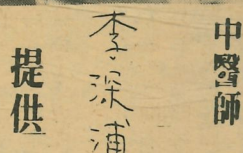 中醫師
李深浦
提供